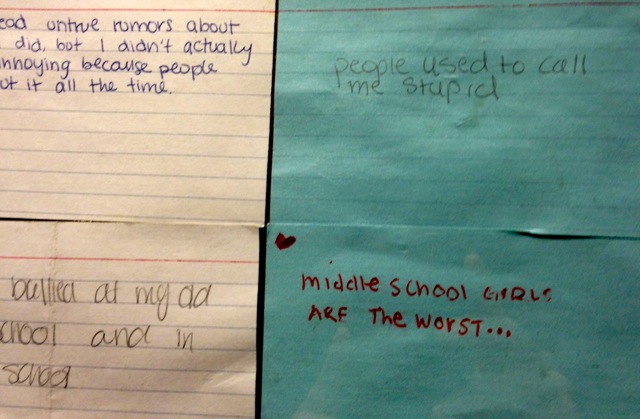 ead untrue rumors about
did, but I didn't actually
nnoying because people
ut it all the time.
people used to call
me stupid
bullied at my old
chool and in
school
middle school GIRLS
ARE The WORST...